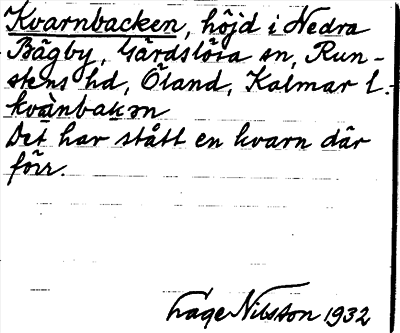 Kvarnbacken, höjd i Nedra
Bägby, Gärdslösa sn, Run-
stens hd, Öland, Kalmar l.
kvànbakən
Det har stått en kvarn där
förr.
Tage Nilsson 1932